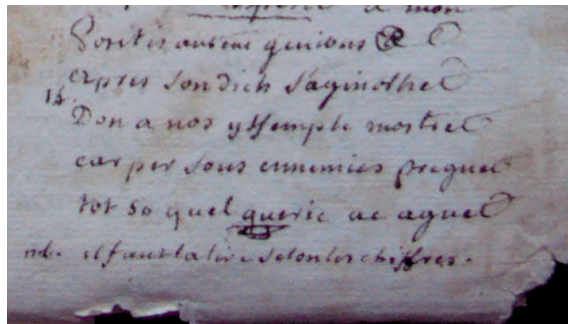 a mon
genious
apres son dich saginolhet
15.
Don a nos yssemple mostret
car per sous ennemics preguet
tot so quel querie ac aguet
nb. il faut la lire selon les chiffres.